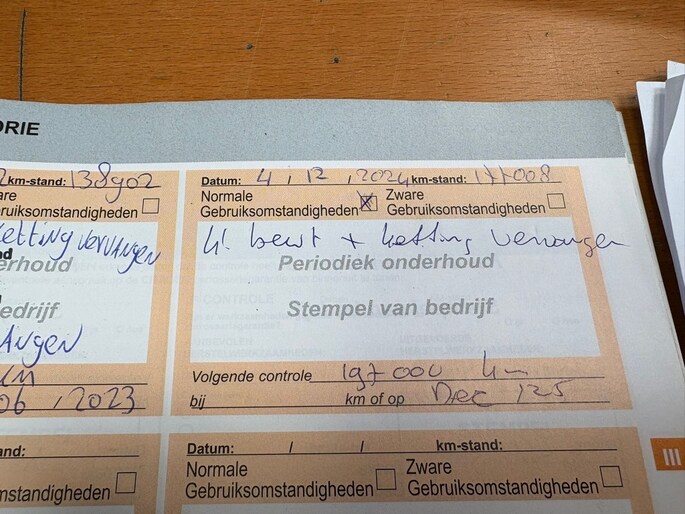 ORIE
km-stand: 138902
are
bruiksomstandigheden
ketting vervangen
nd
erhoud
bedrijf
angen
km
06 / 2023
Datum: 4 / 12 / 2024 km-stand: 177008
Normale
Gebruiksomstandigheden
Zware
Gebruiksomstandigheden
kl. beurt + ketting vervangen
Periodiek onderhoud
Stempel van bedrijf
Volgende controle 197000 km
bij km of op Dec '25
and:
are
bruiksomstandigheden
Datum: / / km-stand:
Normale
Gebruiksomstandigheden
Zware
Gebruiksomstandigheden
III